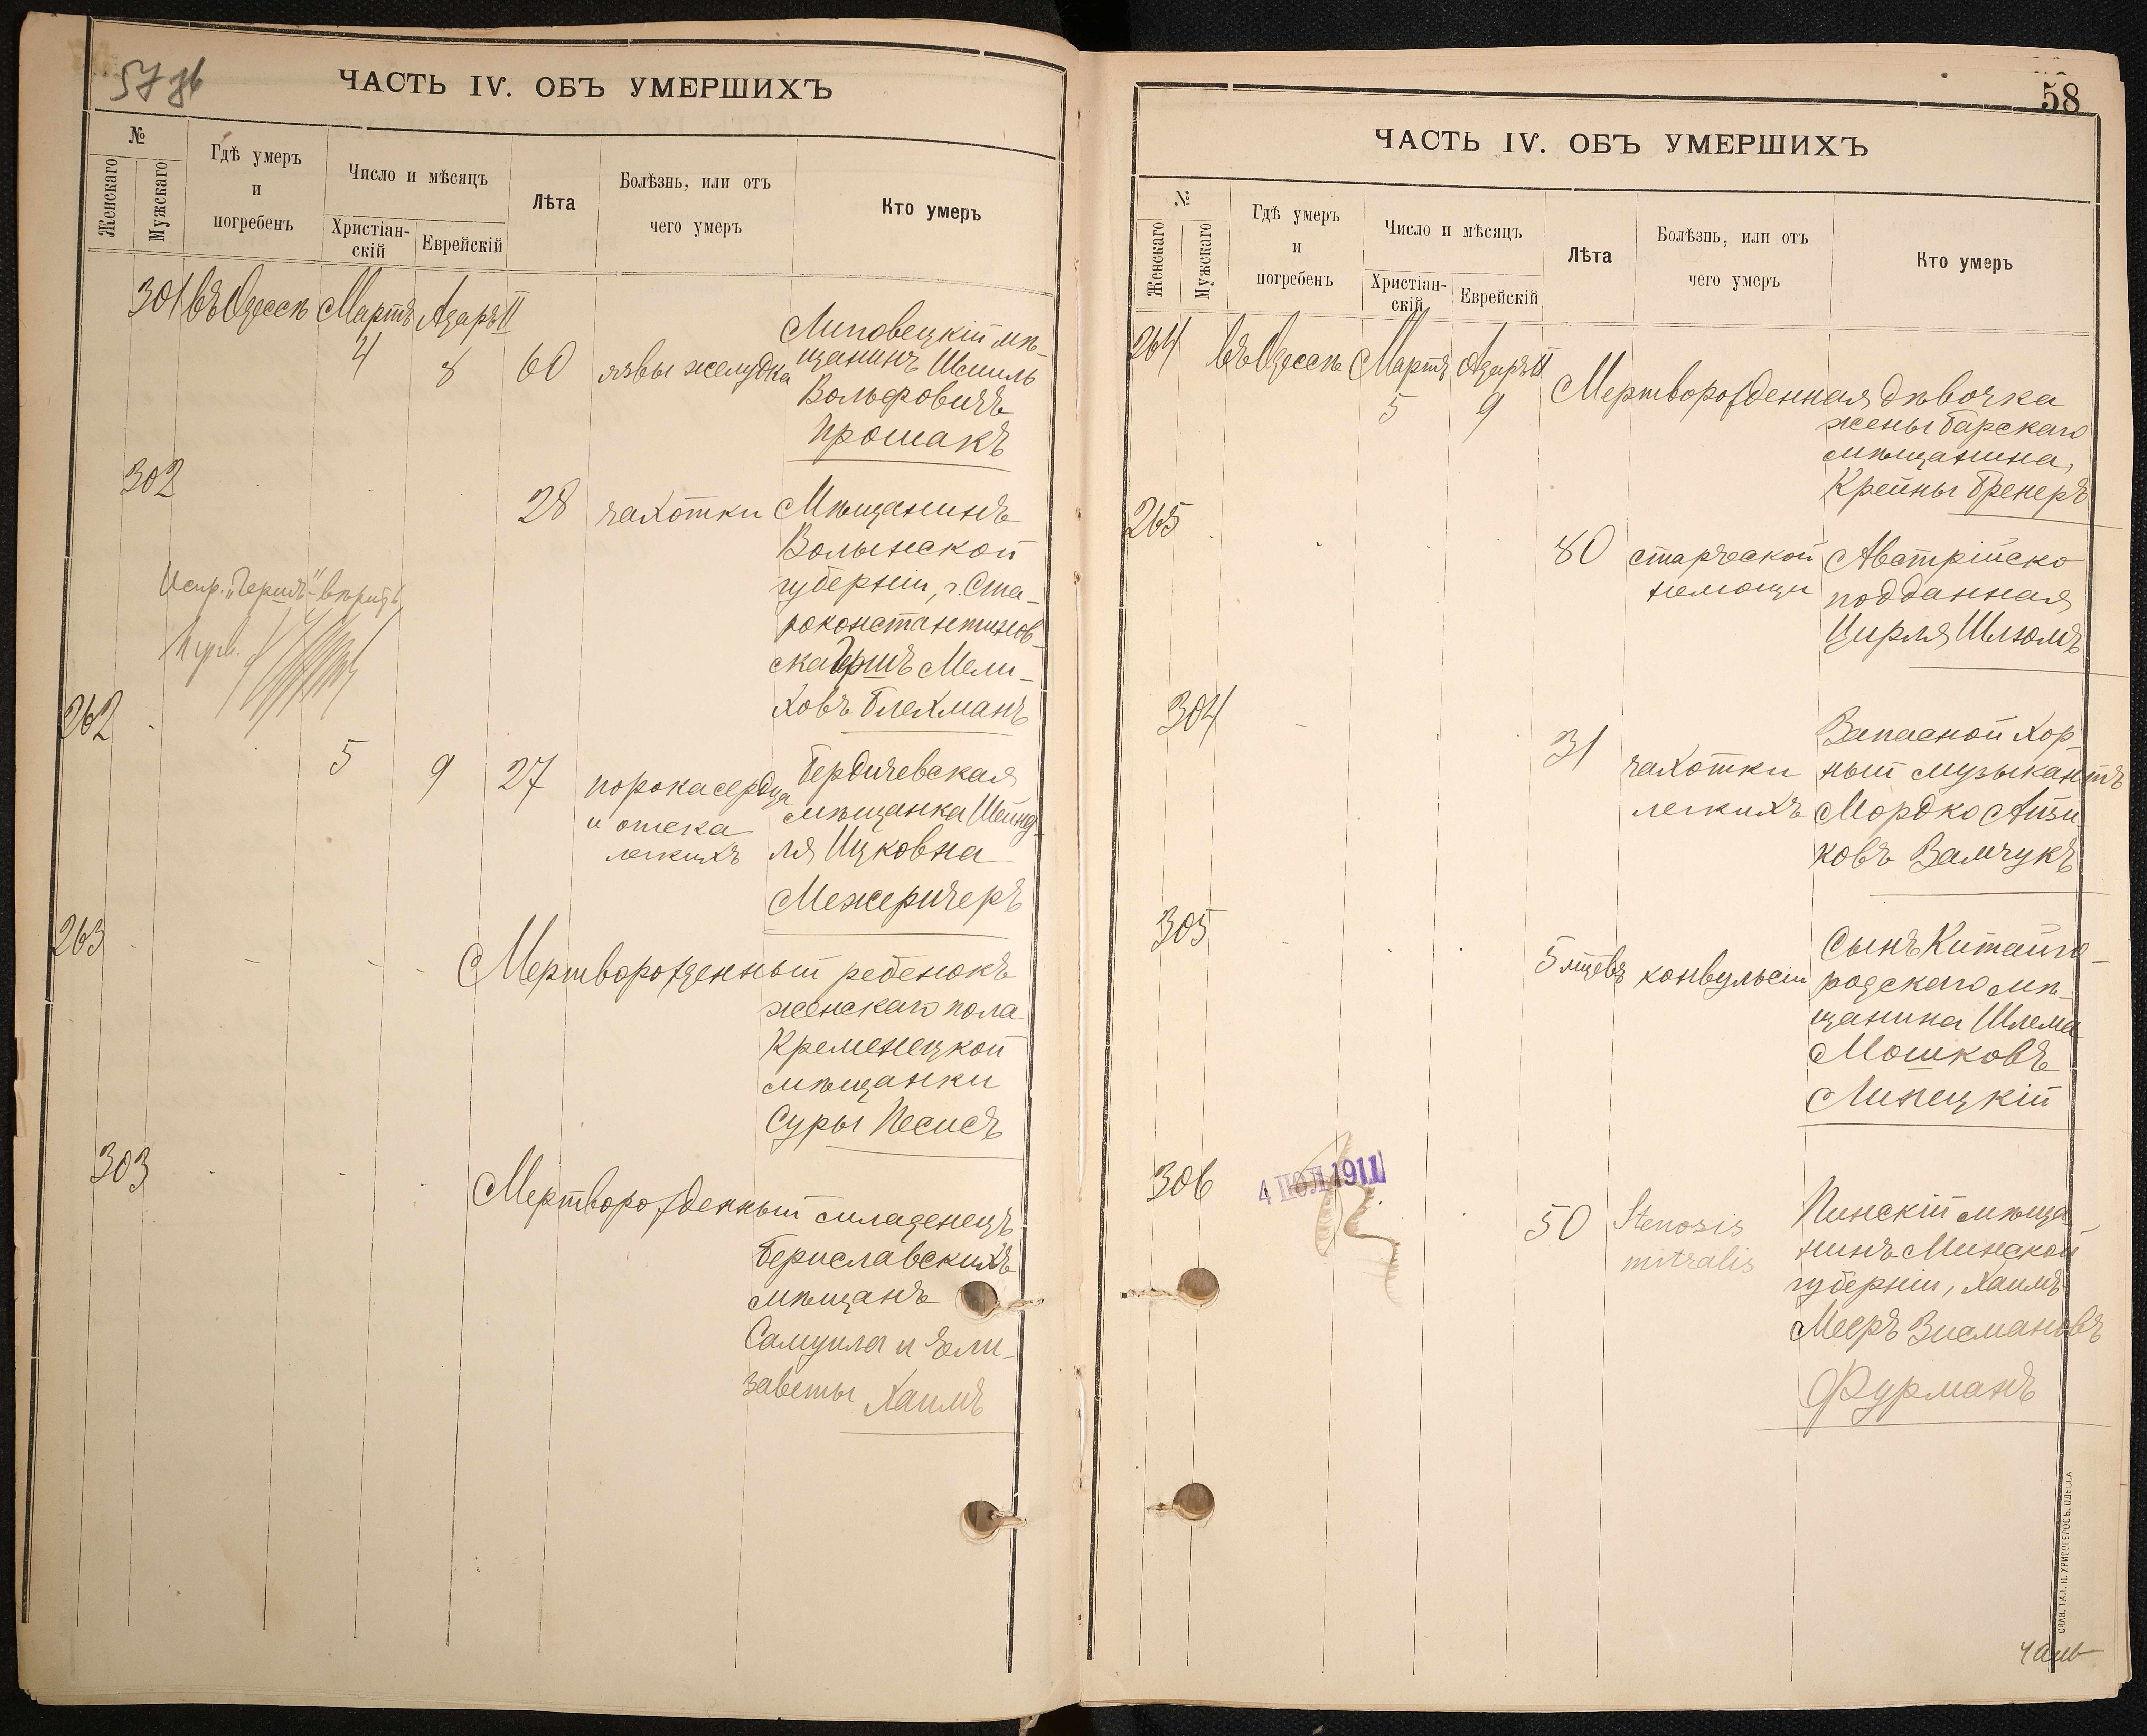 57 зв
ЧАСТЬ IV. ОБЪ УМЕРШИХЪ
№
Женскаго
Мужскаго
Гдѣ умеръ
и
погребенъ
Число и мѣсяцъ
Христіан-
скій
Еврейскій
Лѣта
Болѣзнь, или отъ
чего умеръ
Кто умеръ
301 въ Одессѣ Мартъ Адаръ II
4 8 60 язвы желудка
Липовецкій мѣ-
щанинъ Шмиль
Вольфовичъ
Прошакъ
302
28 чахотки Мѣщанинъ
Волынской
губерніи, г. Ста-
роконстантинов-
ска Гершъ Мели-
ховъ Блехманъ
Испр. "Гершъ" вѣрить
262
5 9 27 порока сердца
и отека
легкихъ
Бердичевская
мѣщанка Шейнд-
ля Ицковна
Межеричеръ
263
Мертворожденный ребенокъ
женскаго пола
Кременецкой
мѣщанки
Суры Песисъ
303
Мертворожденный младенецъ
Бериславскихъ
мѣщанъ
Самуила и Ели-
заветы Хаимъ
58
ЧАСТЬ IV. ОБЪ УМЕРШИХЪ
№
Женскаго
Мужскаго
Гдѣ умеръ
и
погребенъ
Число и мѣсяцъ
Христіан-
скій
Еврейскій
Лѣта
Болѣзнь, или отъ
чего умеръ
Кто умеръ
264 въ Одессѣ Мартъ Адаръ II
5 9
Мертворожденная дѣвочка
жены Барскаго
мѣщанина,
Крейны Бренеръ
265
80 старческой
немощи
Австрійско
подданная
Цирля Шлюмъ
304
31 чахотки
легкихъ
Запасной хор-
ный музыкантъ
Мордко Айзи-
ковъ Вамчукъ
305
5 мцевъ конвульсіи
Сынъ Китайго-
родскаго мѣ-
щанина Шлема
Мошковъ
Липецкій
306
4 ІЮЛ 1911
50 Stenosis
mitralis
Пинскій мѣща-
нинъ Минской
губерніи, Хаимъ-
Мееръ Зисмановъ
Фурманъ
СЛАВ. ТИП. Н. ХРИСОГЕЛОСЪ. ОДЕССА